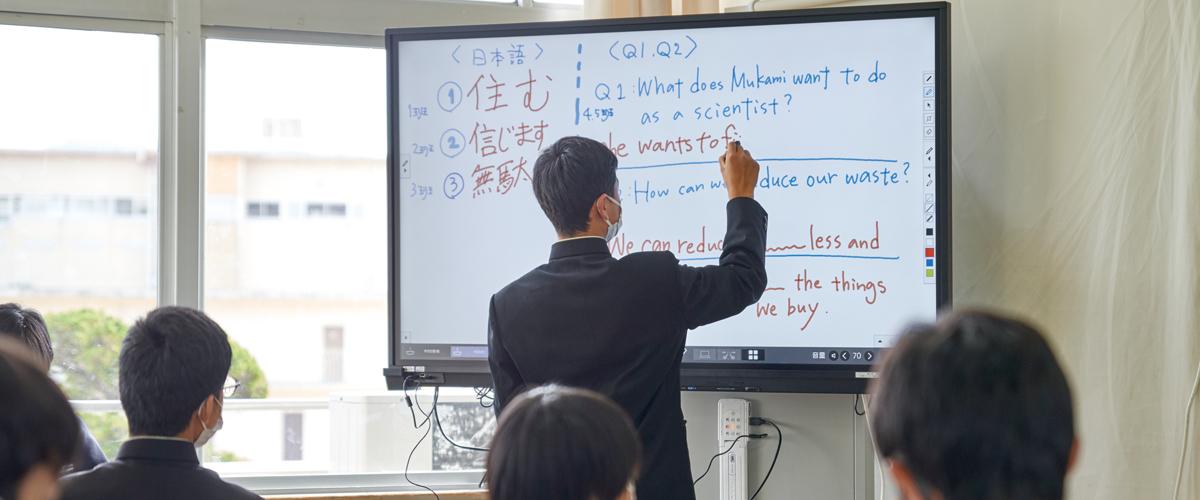 〈日本語〉
1班 ① 住む
2班 ② 信じます
3班 ③ 無駄
〈Q1.Q2〉
Q1:What does Mukami want to do
4.5班 as a scientist?
he wants to f
:How can w duce our waste?
We can reduc less and
the things
we buy.
70